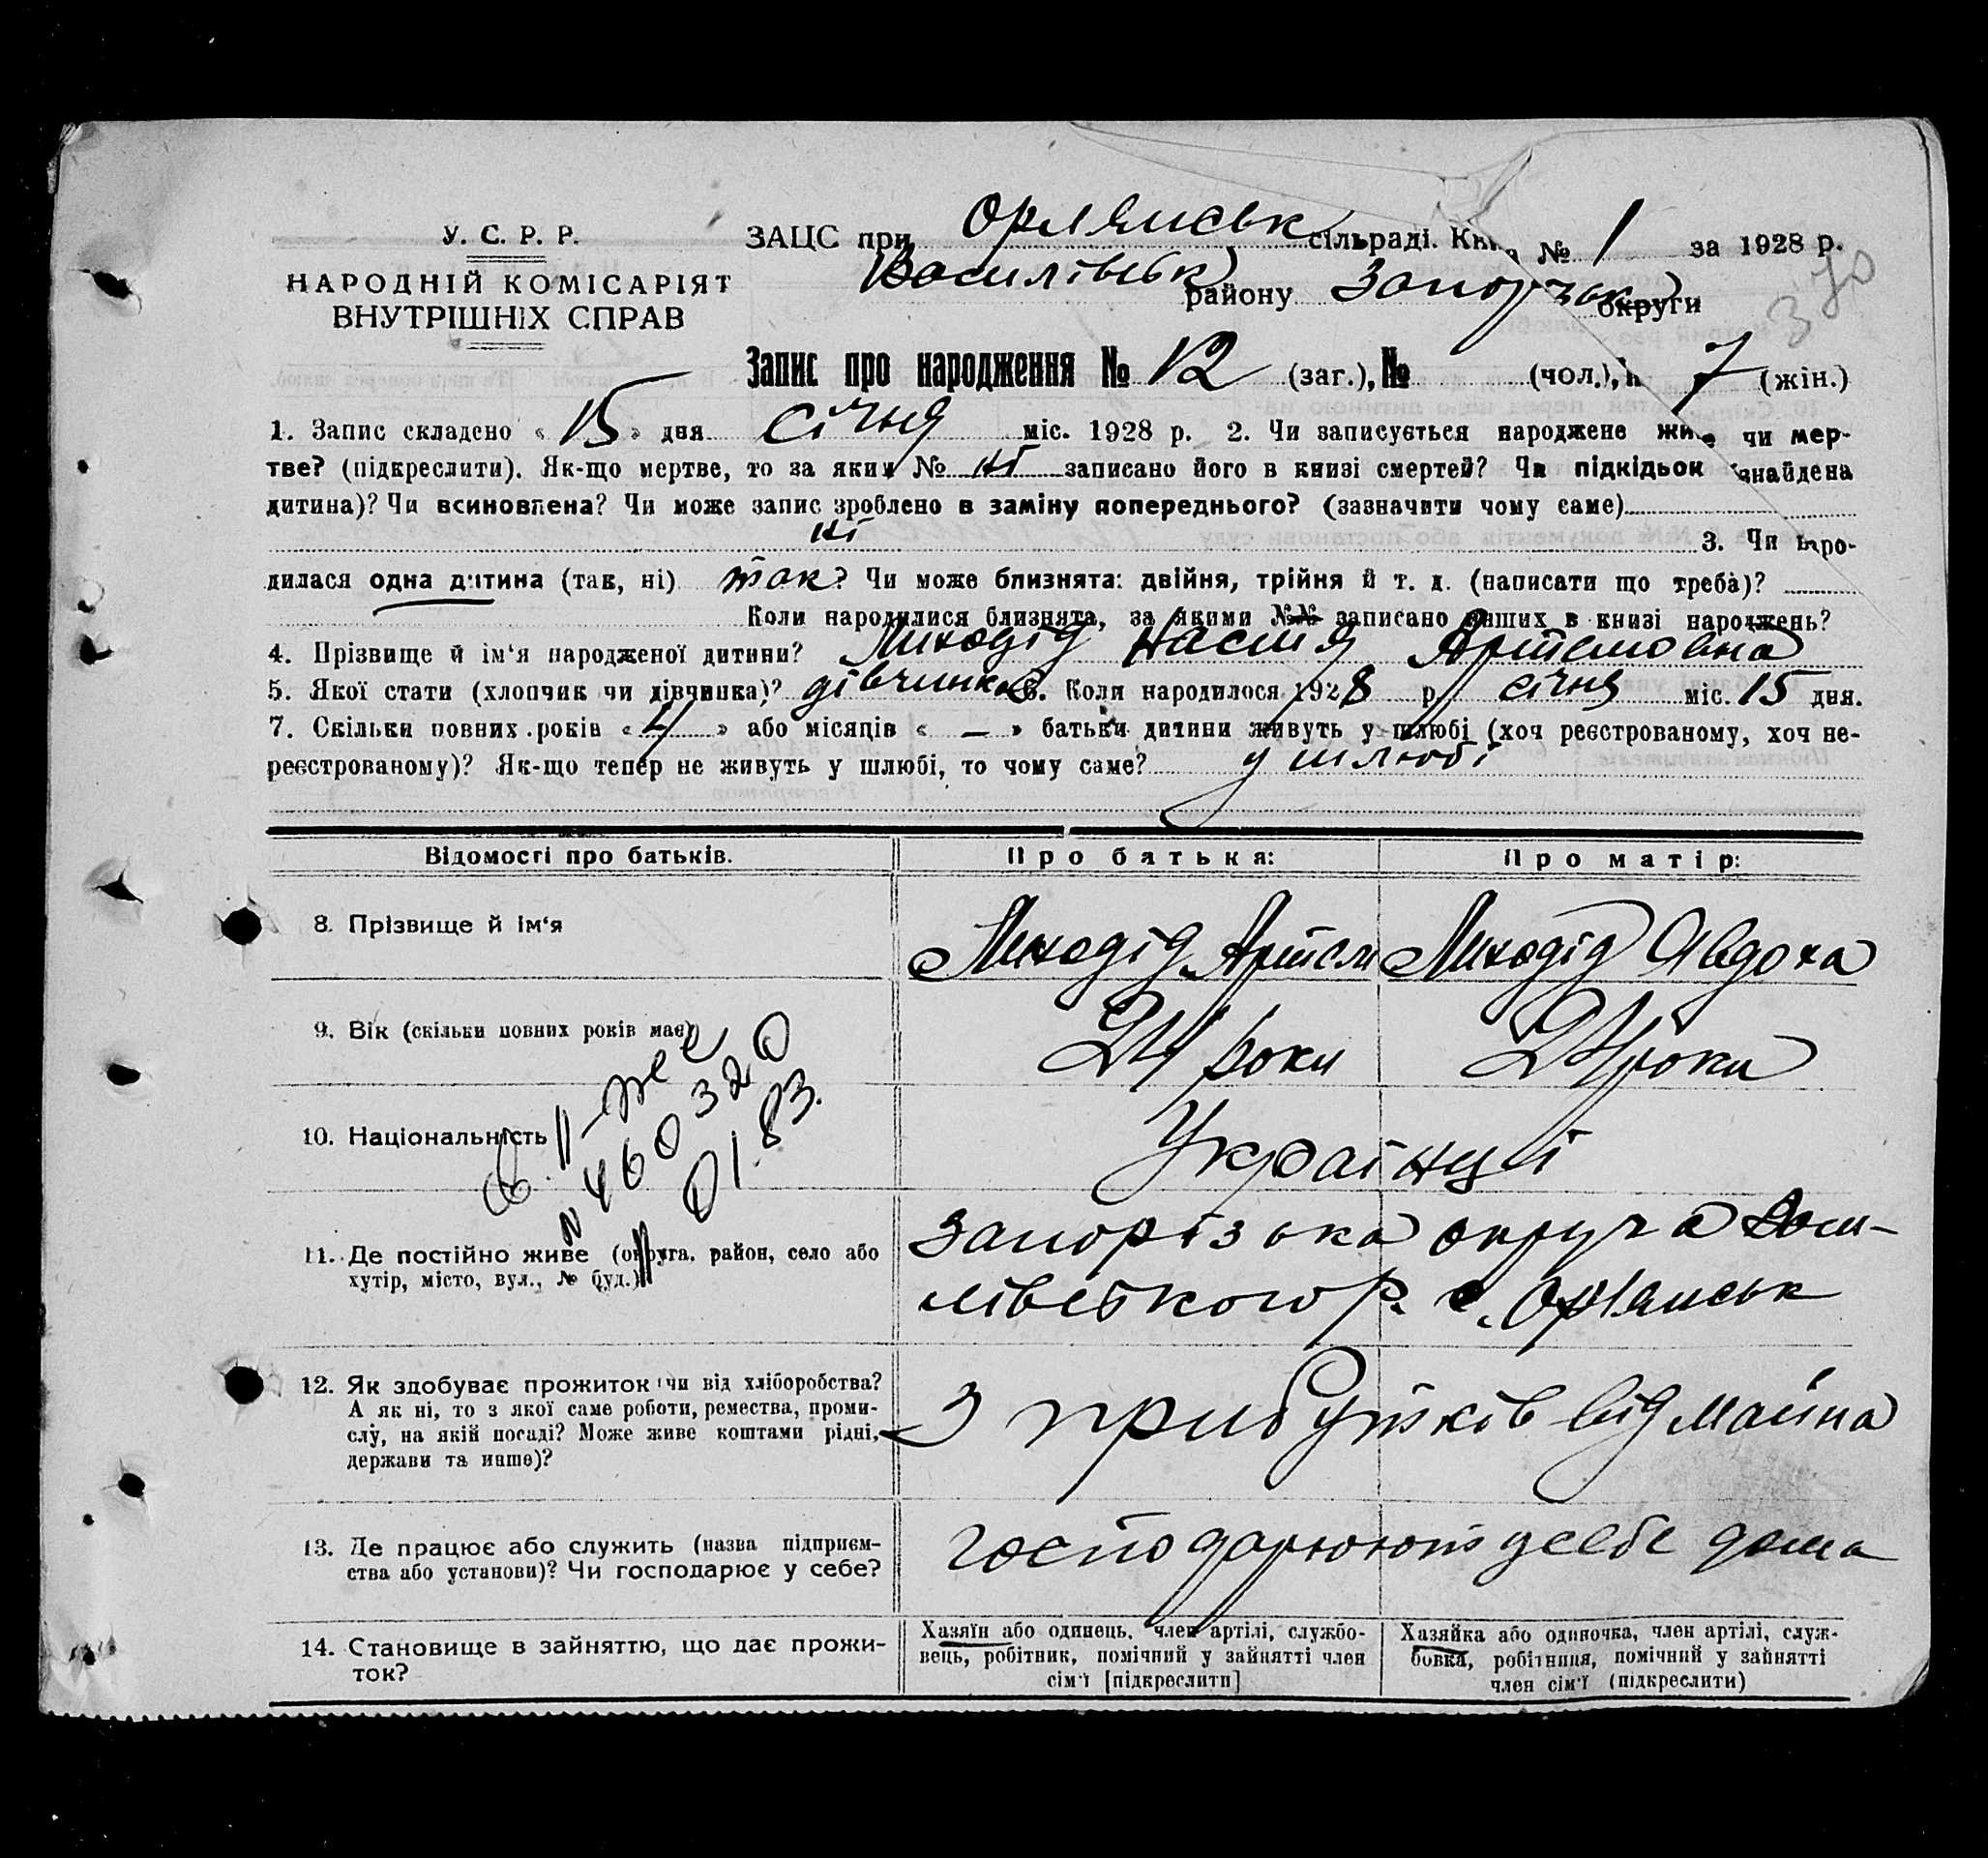 У. С. Р. Р.
НАРОДНІЙ КОМІСАРІЯТ
ВНУТРІШНІХ СПРАВ
ЗАЦС при Орлянськ сільраді. Книга № 1 за 1928 р.
Василівськ району Запорізьк округи
Запис про народження № 12 (заг.), № (чол.), № 7 (жін.)
1. Запис складено « 15 » дня січня міс. 1928 р. 2. Чи записується народжене живе чи мер-
тве? (підкреслити). Як-що мертве, то за яким № ні записано його в книзі смертей? Чи підкідьок (знайдена
дитина)? Чи всиновлена? Чи може запис зроблено в заміну попереднього? (зазначити чому саме)
ні 3. Чи наро-
дилася одна дитина (так, ні) так? Чи може близнята: двійня, трійня й т. д. (написати що треба)?
Коли народилися близнята, за якими №№ записано інших в книзі народжень?
4. Прізвище й ім‘я народженої дитини? Лиходід Настя Артемовна
5. Якої стати (хлопчик чи дівчинка)? дівчинка 6. Коли народилося 1928 р. січня міс. 15 дня.
7. Скільки повних років « 4 » або місяців « — » батьки дитини живуть у шлюбі (хоч реєстрованому, хоч не-
реєстрованому)? Як-що тепер не живуть у шлюбі, то чому саме? у шлюбі
Відомості про батьків. Про батька: Про матір:
8. Прізвище й ім‘я Лиходід Артем Лиходід Явдоха
9. Вік (скільки повних років має) 24 роки 24 роки
10. Національність Українці
№ 460320
01.83.
11. Де постійно живе (округа, район, село або
хутір, місто, вул., № буд.)
Запорізька округа Васи-
лівського р. с. Орлянськ
12. Як здобуває прожиток чи від хліборобства?
А як ні, то з якої саме роботи, ремества, проми-
слу, на якій посаді? Може живе коштами рідні,
держави та инше)?
З прибутків від майна
13. Де працює або служить (назва підприєм-
ства або установи)? Чи господарює у себе?
господарюють у себе дома
14. Становище в зайняттю, що дає прожи-
ток?
Хазяїн або одинець, член артілі, службо-
вець, робітник, помічний у зайнятті член
сім‘ї [підкреслити]
Хазяйка або одиночка, член артілі, служ-
бовка, робітниця, помічний у зайнятті
член сім‘ї (підкреслити)